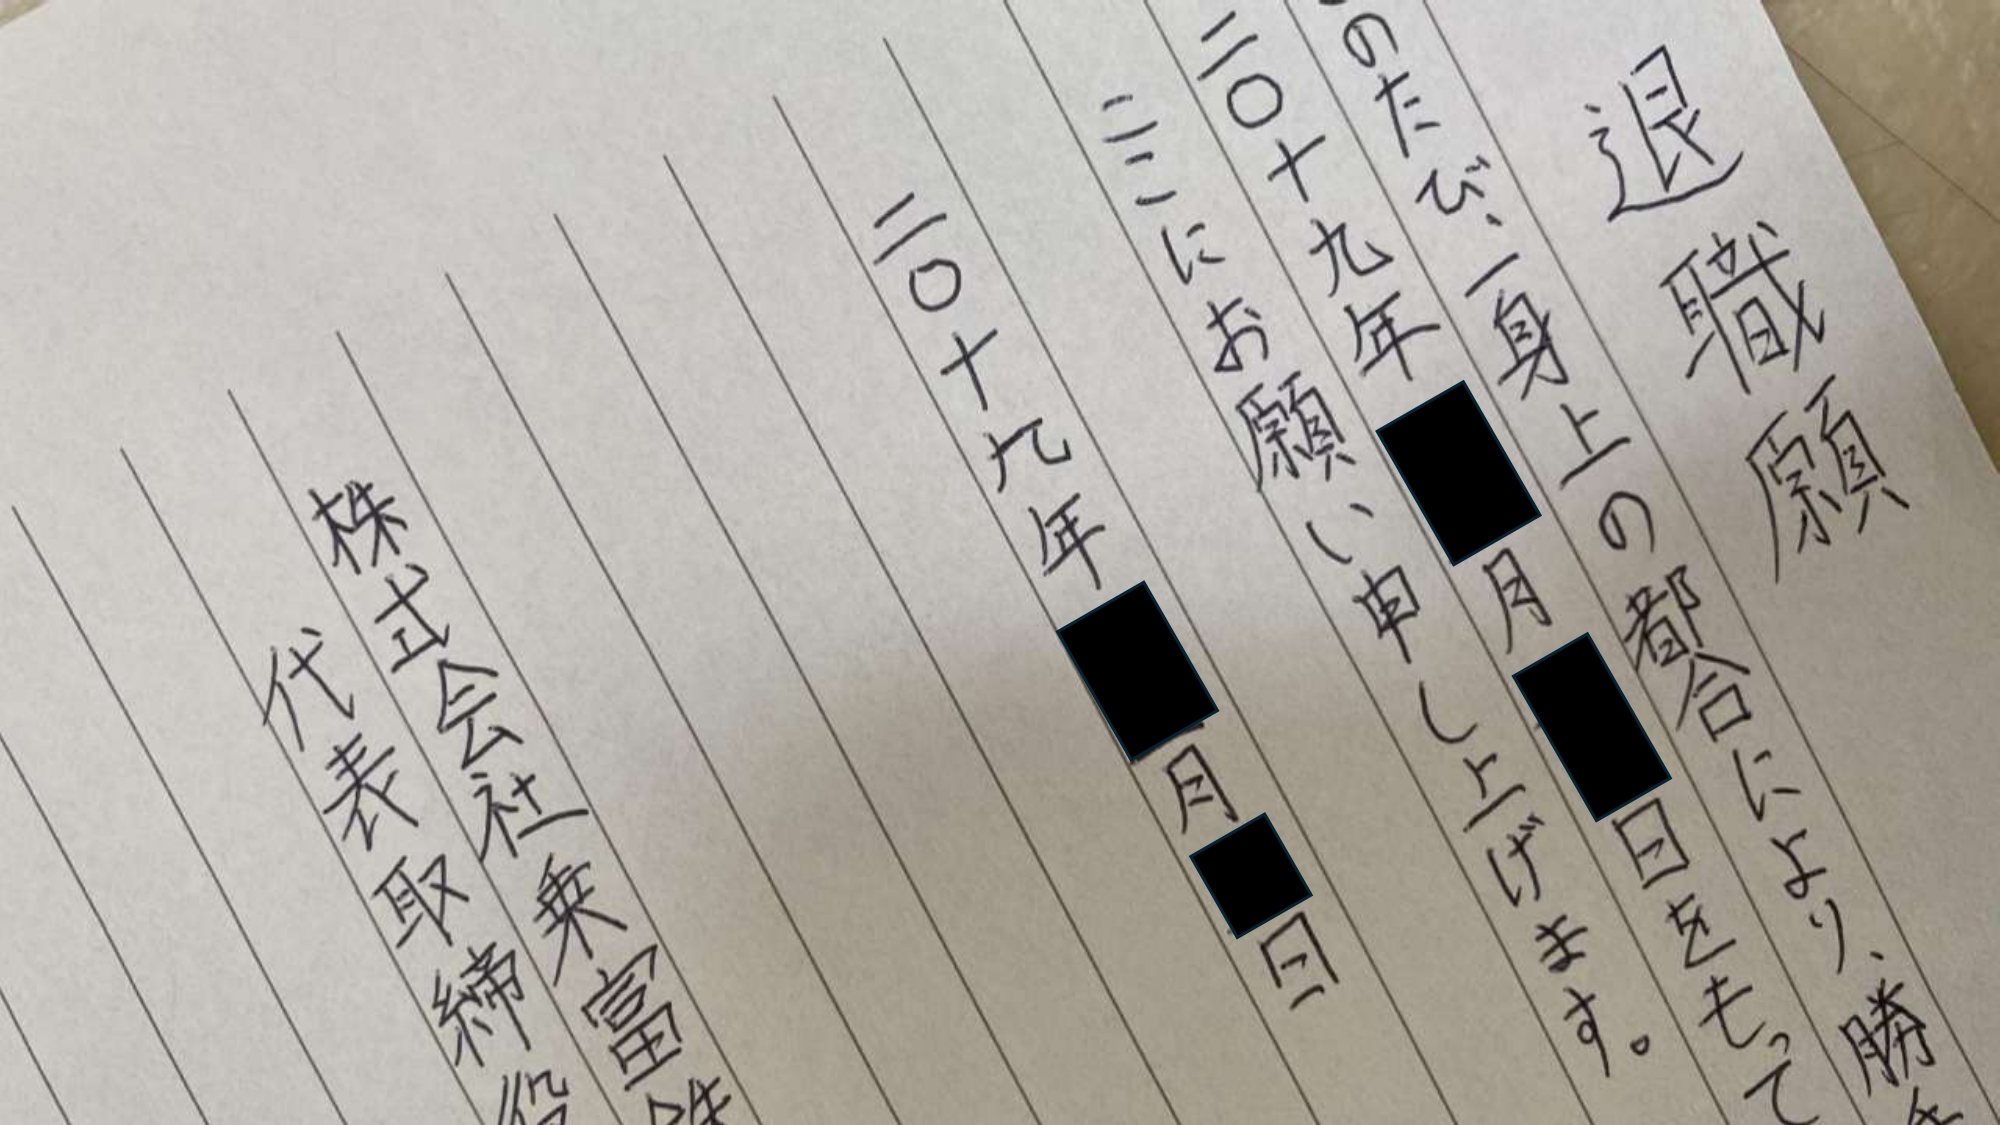 退職願
のたび、一身上の都合により、勝手
二〇十九年 月 日をもって
ここにお願い申し上げます。
二〇十九年 月 日
株式会社乗富鉄
代表取締役